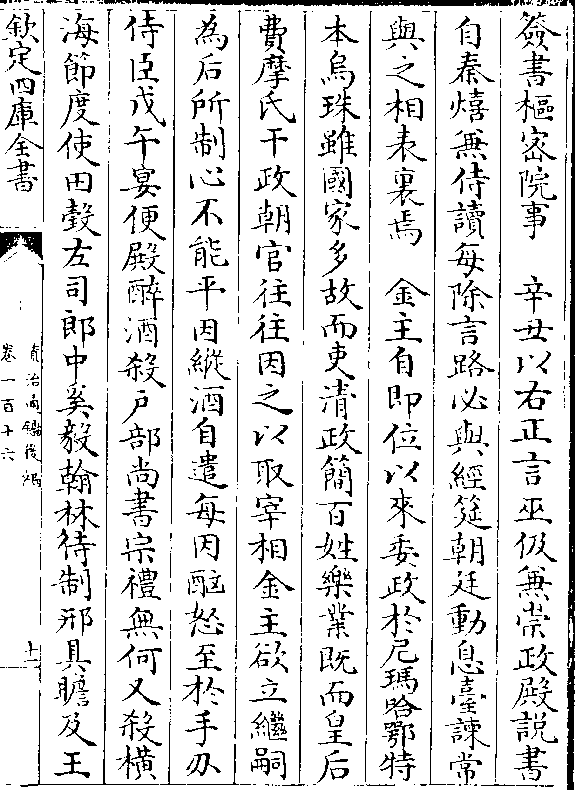 簽書樞密院事　辛丑以右正言巫伋兼崇政殿說書
自秦熺兼侍讀每除言路必與經筵朝廷動息臺諫常
與之相表裏焉　金主自即位以來委政於尼瑪哈鄂特
本烏珠雖國家多故而吏清政簡百姓樂業既而皇后
費摩氏干政朝官往往因之以取宰相金主欲立繼嗣
為后所制心不能平因縱酒自遣每因酗怒至於手刃
侍臣戊午宴便殿醉酒殺戶部尚書宗禮無何又殺橫
海節度使田瑴左司郎中奚毅翰林待制邢具瞻及王
欽定四庫全書
資治通鑑後編
卷一百十六
十一